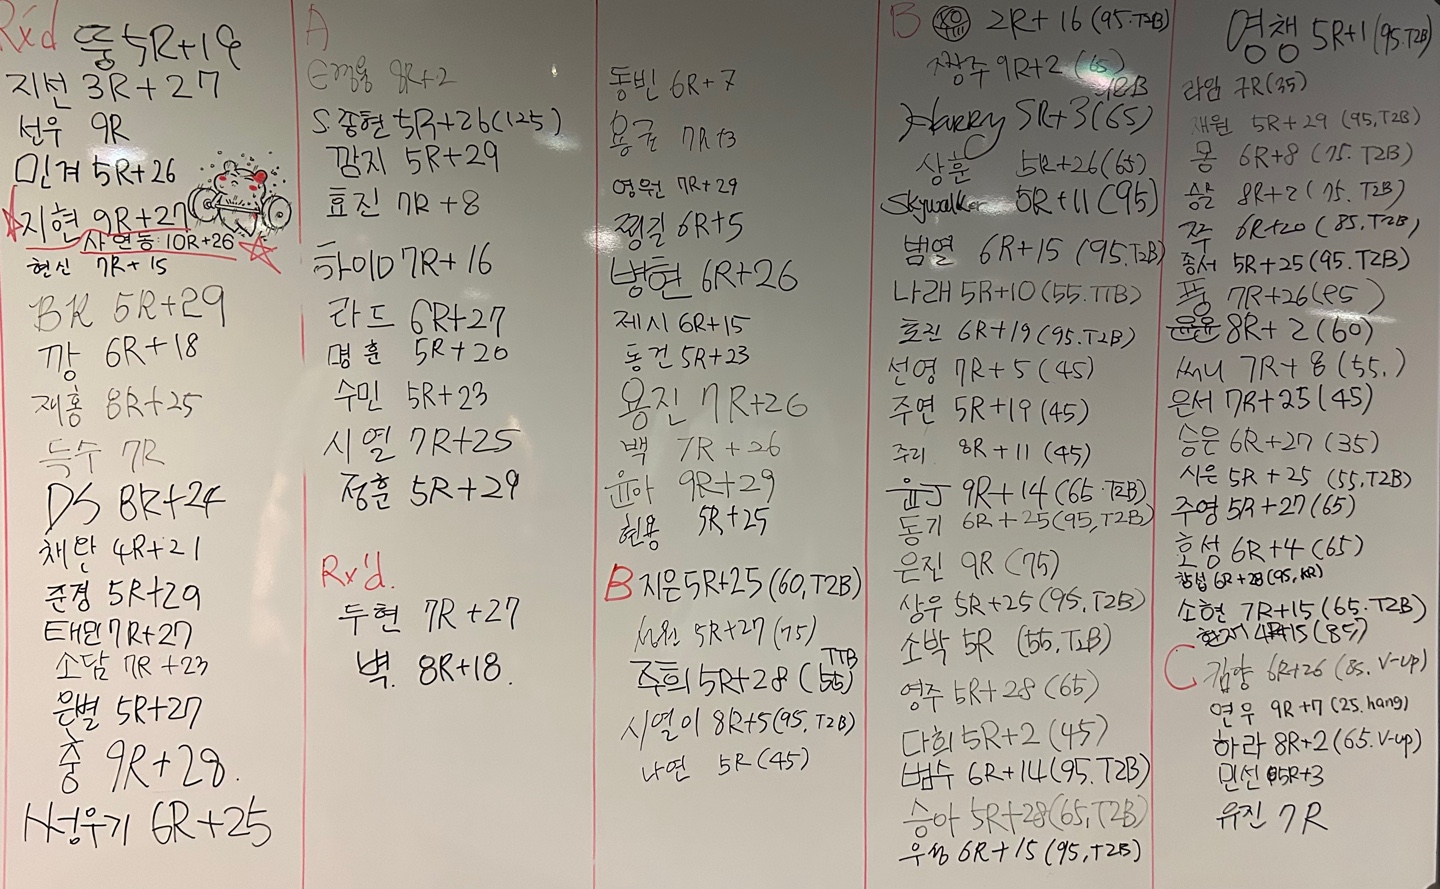 Rx'd
뚱 5R+19
지선 3R+27
선우 9R
민겨 5R+26
지현 9R+27
사연동 10R+26
현신 7R+15
BK 5R+29
깡 6R+18
재홍 8R+25
득수 7R
DS 8R+24
채완 4R+21
준경 5R+29
태민 7R+27
소담 7R+23
은별 5R+27
중 9R+28.
성우기 6R+25
A
9R+2
S.종현 5R+26(125)
깜지 5R+29
효진 7R+8
하이D 7R+16
라드 6R+27
명훈 5R+20
수민 5R+23
시열 7R+25
정훈 5R+29
Rx'd.
두현 7R+27
벽. 8R+18.
동빈 6R+7
용근 7R+3
영원 7R+29
찡길 6R+5
병현 6R+26
제시 6R+15
동건 5R+23
용진 7R+26
백 7R+26
윤아 9R+29
현용 5R+25
B 지은 5R+25(60,T2B)
성원 5R+27(75)
주희 5R+28(55) TTB
시열이 8R+5(95.T2B)
나연 5R(45)
B
2R+16(95.T2B)
짱주 9R+2(65)
Harry 5R+3(65)
상훈 5R+26(65)
Skywalker 5R+11(95)
범열 6R+15(95.T2B)
나래 5R+10(55.TTB)
효진 6R+19(95.T2B)
선영 7R+5(45)
주연 5R+19(45)
주리 8R+11(45)
윤J 9R+14(65.T2B)
동기 6R+25(95,T2B)
은진 9R(75)
상우 5R+25(95.T2B)
소박 5R(55,T2B)
영주 5R+28(65)
다희 5R+2(45)
범수 6R+14(95.T2B)
승아 5R+28(65,T2B)
우성 6R+15(95,T2B)
영챙 5R+1(95.T2B)
라임 7R(35)
재원 5R+29(95,T2B)
몽 6R+8(75.T2B)
8R+2(75.T2B)
쭈 6R+20(85,T2B)
종서 5R+25(95.T2B)
퐁 7R+26(95)
윤윤 8R+2(60)
써니 7R+8(55.)
은서 7R+25(45)
승은 6R+27(35)
시은 5R+25(55,T2B)
주영 5R+27(65)
호성 6R+4(65)
창섭 6R+28(95,KR)
소현 7R+15(65.T2B)
4R+15(85)
C 김향 6R+26(85.V-up)
연우 9R+7(25.hang)
하라 8R+2(65.V-up)
민선 5R+3
유진 7R